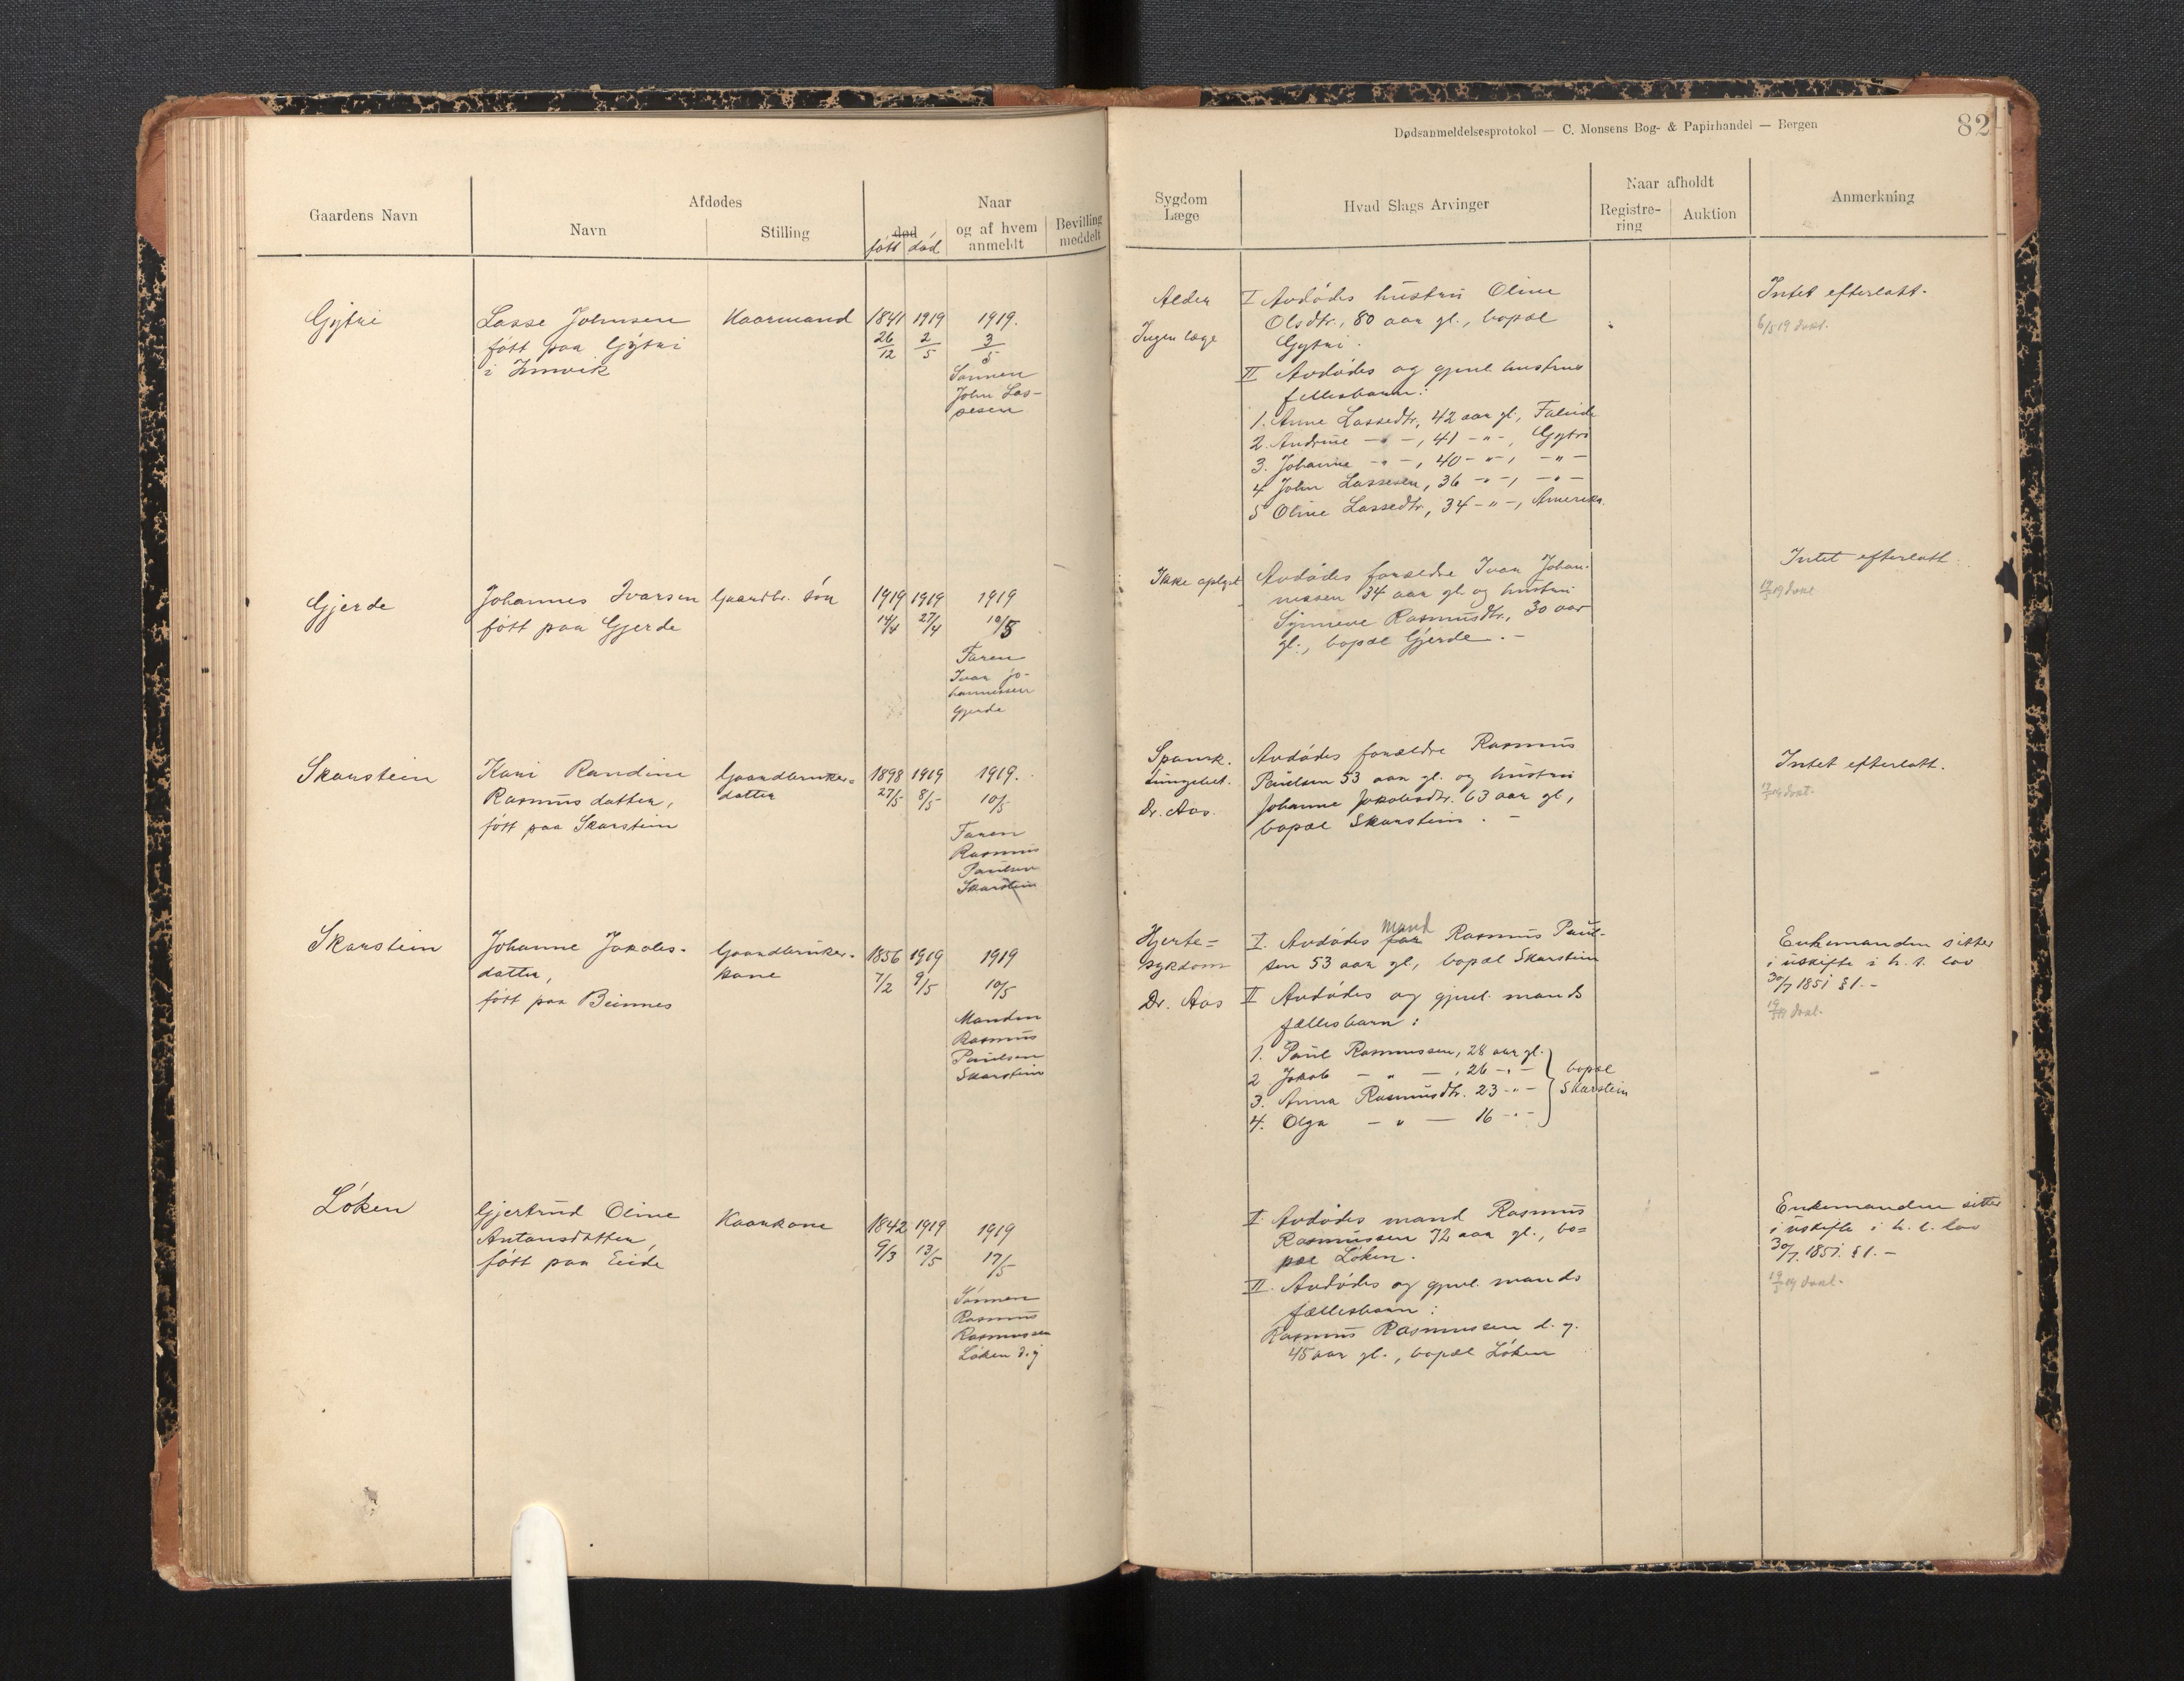 Dødsanmeldelsesprotokol — C. Monsens Bog- & Papirhandel — Bergen
82
Gaardens Navn
Afdødes
Navn
Stilling
Naar
død
født
død
og af hvem
anmeldt
Bevilling
meddelt
Sygdom
Læge
Hvad Slags Arvinger
Naar afholdt
Registre-
ring
Auktion
Anmerkning
Gytri
Lasse Johnsen
født paa Gytri
i Innvik
Kaarmand
1841
26/12
1919
2/5
1919.
3/5
Sønnen
John Las-
sesen
Alder
Ingen læge
I Avdødes hustru Oline
Olsdtr., 80 aar gl., bopæl
Gytri.
II Avdødes og gjenl. hustrus
fellesbarn:
1. Anne Lassedtr., 42 aar gl., Faleide
2. Andrine - " -, 41 - " -, Gytri
3. Johanna - " -, 40 - " -, - " -
4 John Lassesen, 36 - " -, - " -
5 Oline Lassedtr., 34 - " -, Amerika.
Intet efterlatt.
6/5 19 dokt.
Gjerde
Johannes Ivarsen
født paa Gjerde
Gaardbr. søn
1919
14/4
1919
27/4
1919
10/5
Faren
Ivar Jo-
hannessen
Gjerde
Ikke oplyst
Avdødes forældre Ivar Johan-
nessen 34 aar gl. og hustru
Synneve Rasmusdtr., 30 aar
gl., bopæl Gjerde. -
Intet efterlatt.
19 dokt
Skarstein
Kari Randine
Rasmusdatter,
født paa Skarstein
Gaardbruker=
datter
1898
27/5
1919
8/5
1919.
10/5
Faren
Rasmus
Paulsen
Skarstein
Spansk.
Lungebet.
Dr. Aas.
Avdødes forældre Rasmus
Paulsen 53 aar gl. og hustru
Johanne Jakobsdtr. 63 aar gl.,
bopæl Skarstein. -
Intet efterlatt.
19 dokt.
Skarstein
Johanne Jakobs-
datter,
født paa Beinnes
Gaardbruker-
kone
1856
7/2
1919
9/5
1919
10/5
Manden
Rasmus
Paulsen
Skarstein
Hjerte=
sykdom
Dr. Aas
mand
I. Avdødes far Rasmus Paul-
sen 53 aar gl., bopæl Skarstein
II Avdødes og gjenl. mands
fællesbarn:
1. Paul Rasmussen, 28 aar gl.
2 Jakob - " -, 26 - " -
3. Anna Rasmusdtr. 23 - " -
4. Olga - " - 16 - " -
bopæl
Skarstein
Enkemanden sitter
i uskifte i h. t. lov
30/7 1851 § 1. -
19 dokt.
Løken
Gjertrud Oline
Antonsdatter,
født paa Eide
Kaarkone
1842
9/3
1919
13/5
1919
17/5
Sønnen
Rasmus
Rasmussen
Løken d.y
I Avdødes mand Rasmus
Rasmussen 72 aar gl., bo=
pæl Løken.
II. Avdødes og gjenl. mands
fællesbarn:
Rasmus Rasmussen d. y.
45 aar gl., bopæl Løken
Enkemanden sitter
i uskifte i h. t. lov
30/7 1851. § 1. -
19 dokt.